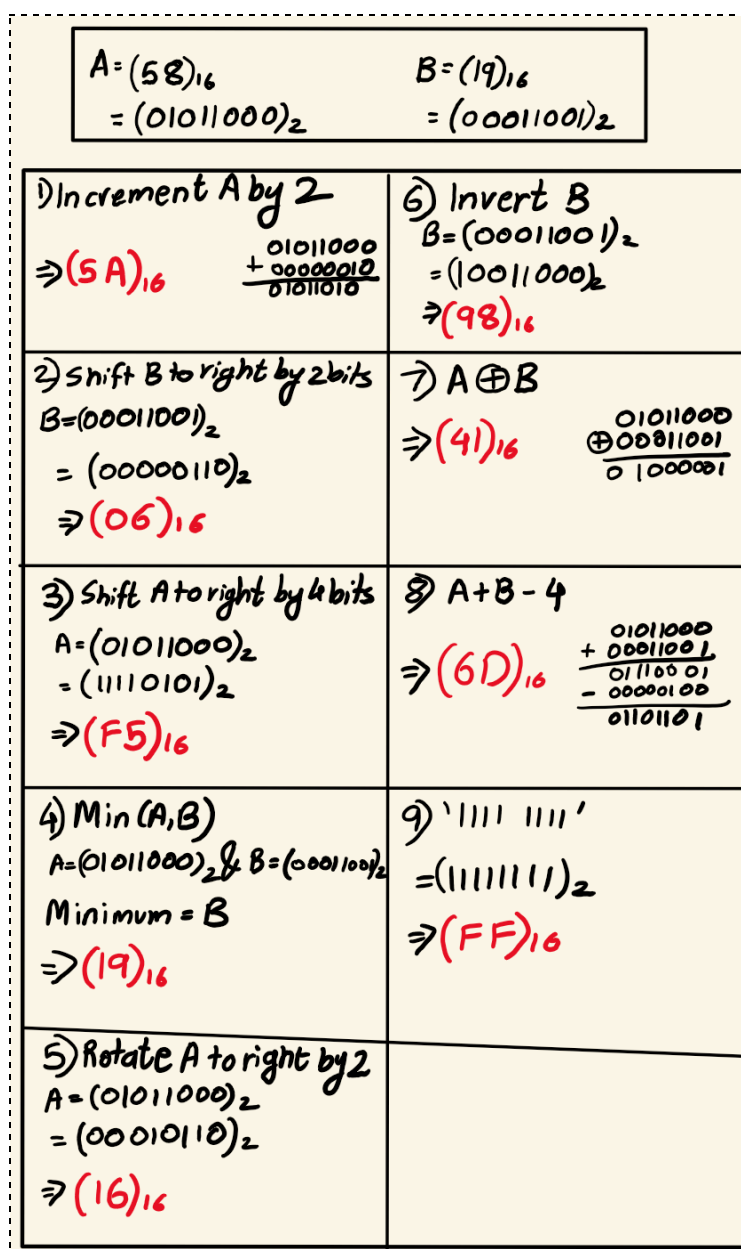 A=(58)₁₆
=(01011000)₂
B=(19)₁₆
=(00011001)₂
1) Increment A by 2
⇒(5A)₁₆
01011000
+ 00000010
01011010
2) Shift B to right by 2 bits
B=(00011001)₂
= (00000110)₂
⇒(06)₁₆
3) Shift A to right by 4 bits
A=(01011000)₂
=(11110101)₂
⇒(F5)₁₆
4) Min(A,B)
A=(01011000)₂ & B=(00011001)₂
Minimum = B
⇒(19)₁₆
5) Rotate A to right by 2
A=(01011000)₂
=(00010110)₂
⇒(16)₁₆
6) Invert B
B=(00011001)₂
=(10011000)₂
⇒(98)₁₆
7) A⊕B
⇒(41)₁₆
01011000
⊕00011001
01000001
8) A+B-4
⇒(6D)₁₆
01011000
+ 00011001
01110001
- 00000100
01101101
9) '1111 1111'
=(11111111)₂
⇒(FF)₁₆